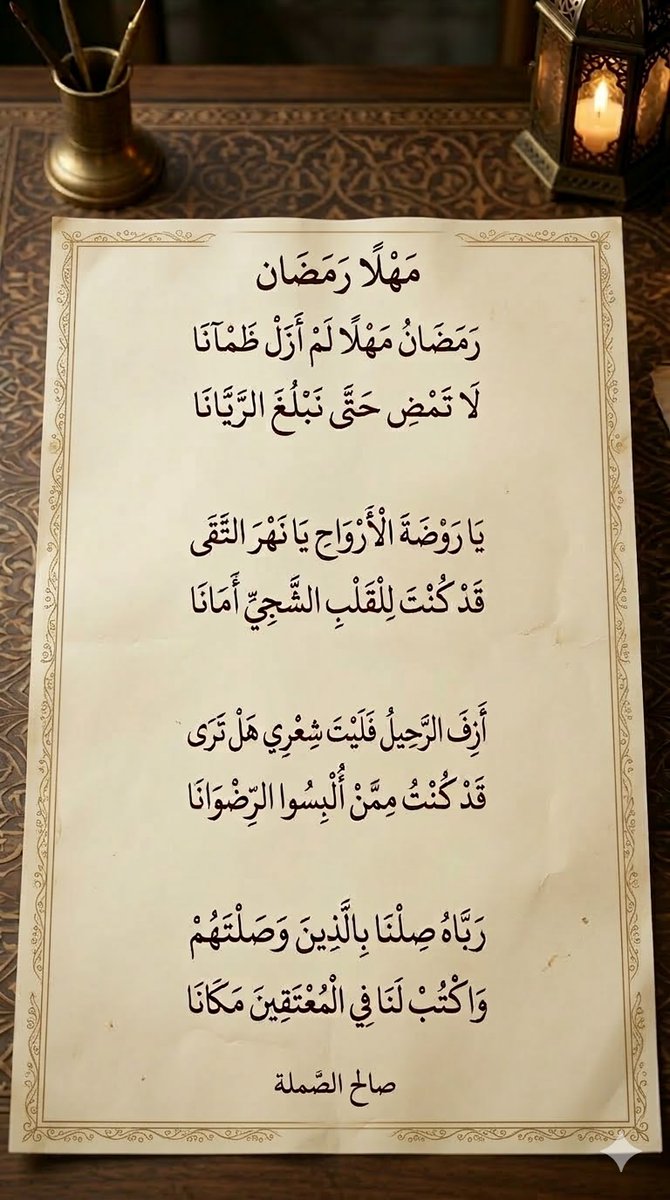 مَهْلًا رَمَضَان
رَمَضَانُ مَهْلًا لَمْ أَزَلْ ظَمْآنَا
لَا تَمْضِ حَتَّى نَبْلُغَ الرَّيَّانَا
يَا رَوْضَةَ الْأَرْوَاحِ يَا نَهْرَ التَّقَى
قَدْ كُنْتَ لِلْقَلْبِ الشَّجِيِّ أَمَانَا
أَزِفَ الرَّحِيلُ فَلَيْتَ شِعْرِي هَلْ تَرَى
قَدْ كُنْتُ مِمَّنْ أُلْبِسُوا الرِّضْوَانَا
رَبَّاهُ صِلْنَا بِالَّذِينَ وَصَلْتَهُمْ
وَاكْتُبْ لَنَا فِي الْمُعْتَقِينَ مَكَانَا
صالح الصَّملة